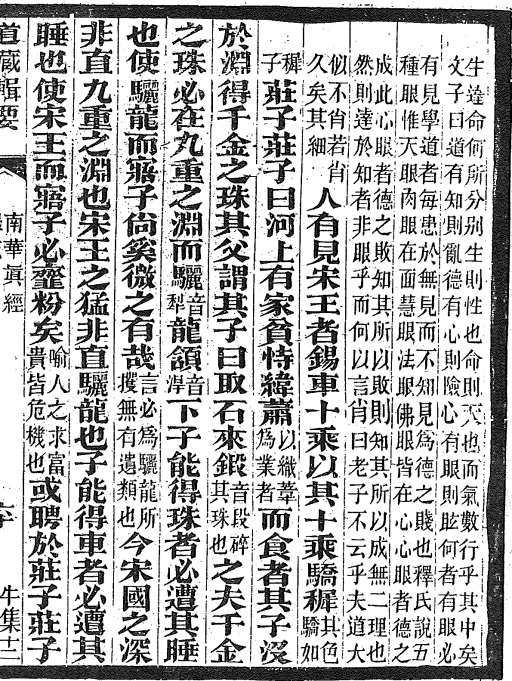 生達命何所分别生則性也命則天也而氣數行乎其中矣
文子曰道有知則亂德有心則險心有眼則眩何者有眼必
有見學道者每患於無見而不知見為德之賤也釋氏說五
種眼惟天眼肉眼在面慧眼法眼佛眼皆在心心眼者德之
成此心眼者德之敗知其所以敗則知其所以成無二理也
然則達於知者非眼乎而何以言肖曰老子不云乎夫道大
似不肖若肖久矣其細人有見宋王者錫車十乘以其十乘驕穉其色驕如
穉子莊子莊子曰河上有家貧恃緯蕭以織葦為業者而食者其子沒
於淵得千金之珠其父謂其子曰取石來鍛音段碎其珠也之夫千金
之珠必在九重之淵而驪音犁龍頷音下子能得珠者必遭其睡
也使驪龍而寤子尚奚微之有哉言必為驪龍所攫無有遺類也今宋國之深
非直九重之淵也宋王之猛非直驪龍也子能得車者必遭其
睡也使宋王而寤子必韲粉矣喻人之求富貴皆危機也或聘於莊子莊子
道藏輯要
南華眞經
牛集十二